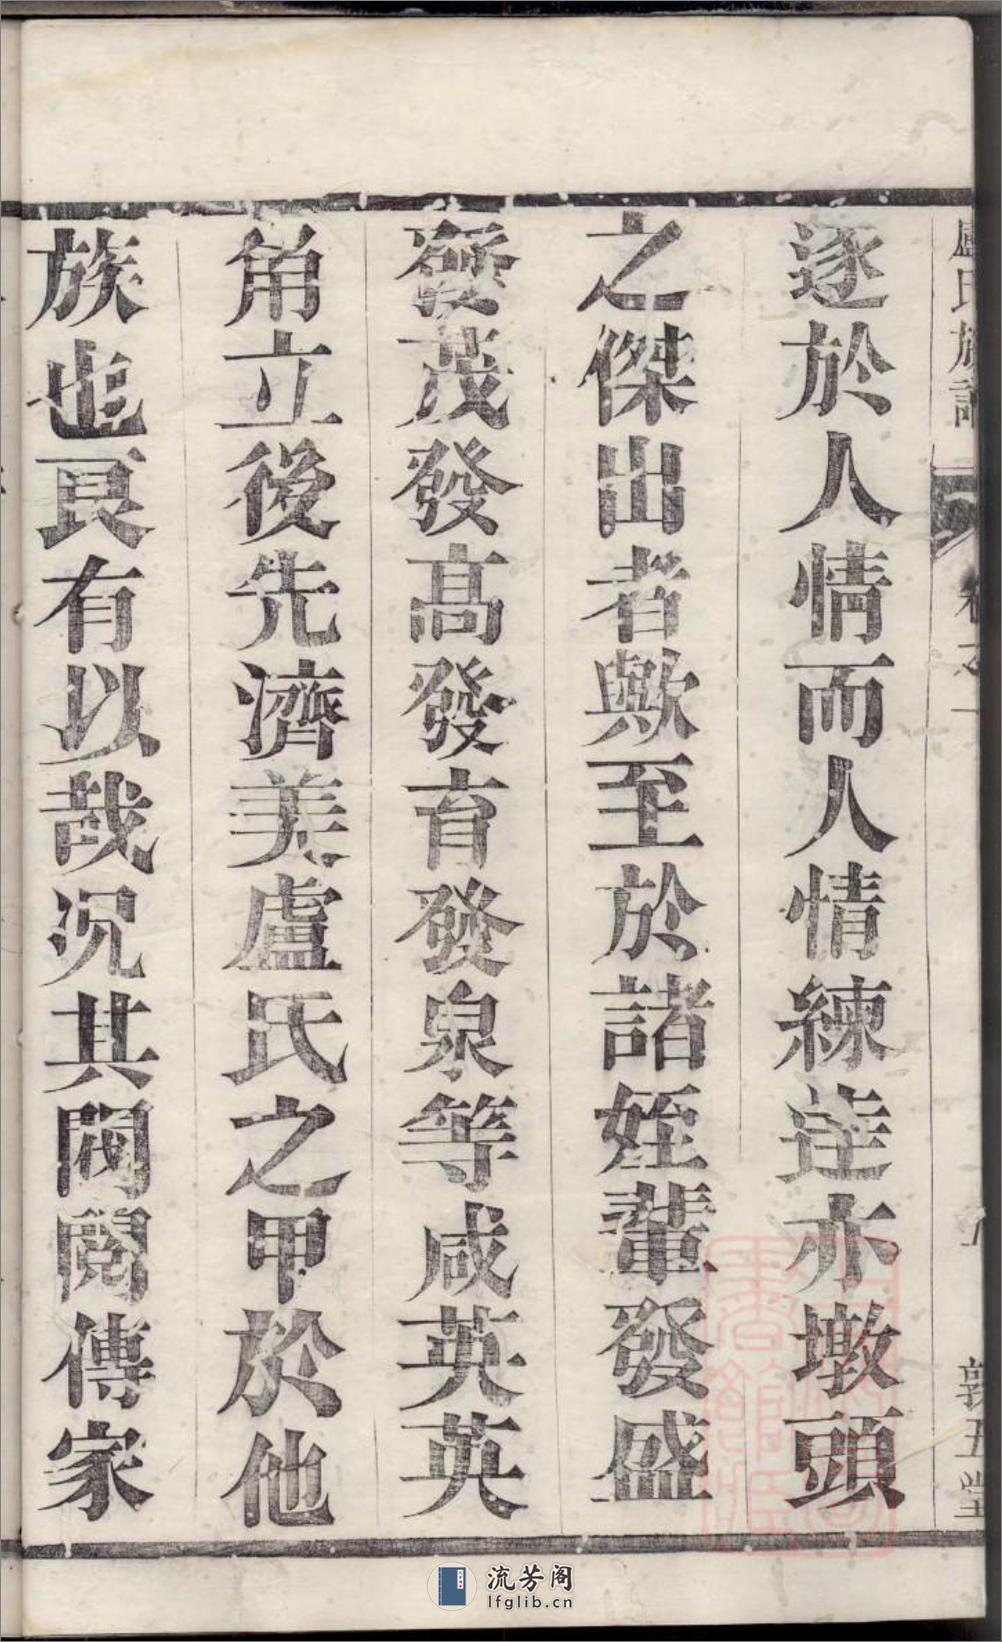 盧氏族譜
卷之一
敦五堂
逐於人情而人情練達亦墩頭
之傑出者歟至於諸姪輩發盛
發茂發高發育發泉等咸英英
角立後先濟美盧氏之甲於他
族也良有以哉况其閥閱傳家
流芳阁
lfglib.cn